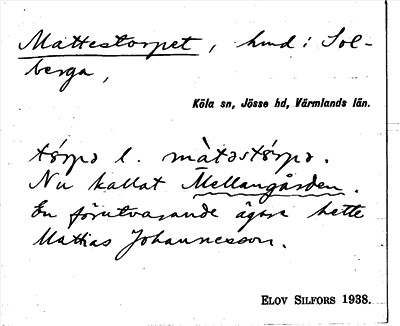 Mattestorpet, hmd i Sol-
berga,
Köla sn, Jösse hd, Värmlands län.
tɷ́rpə l. màtəstɷ́rpə.
Nu kallat Mellangården.
En förutvarande ägare hette
Mattias Johannesson.
ELOV SILFORS 1938.